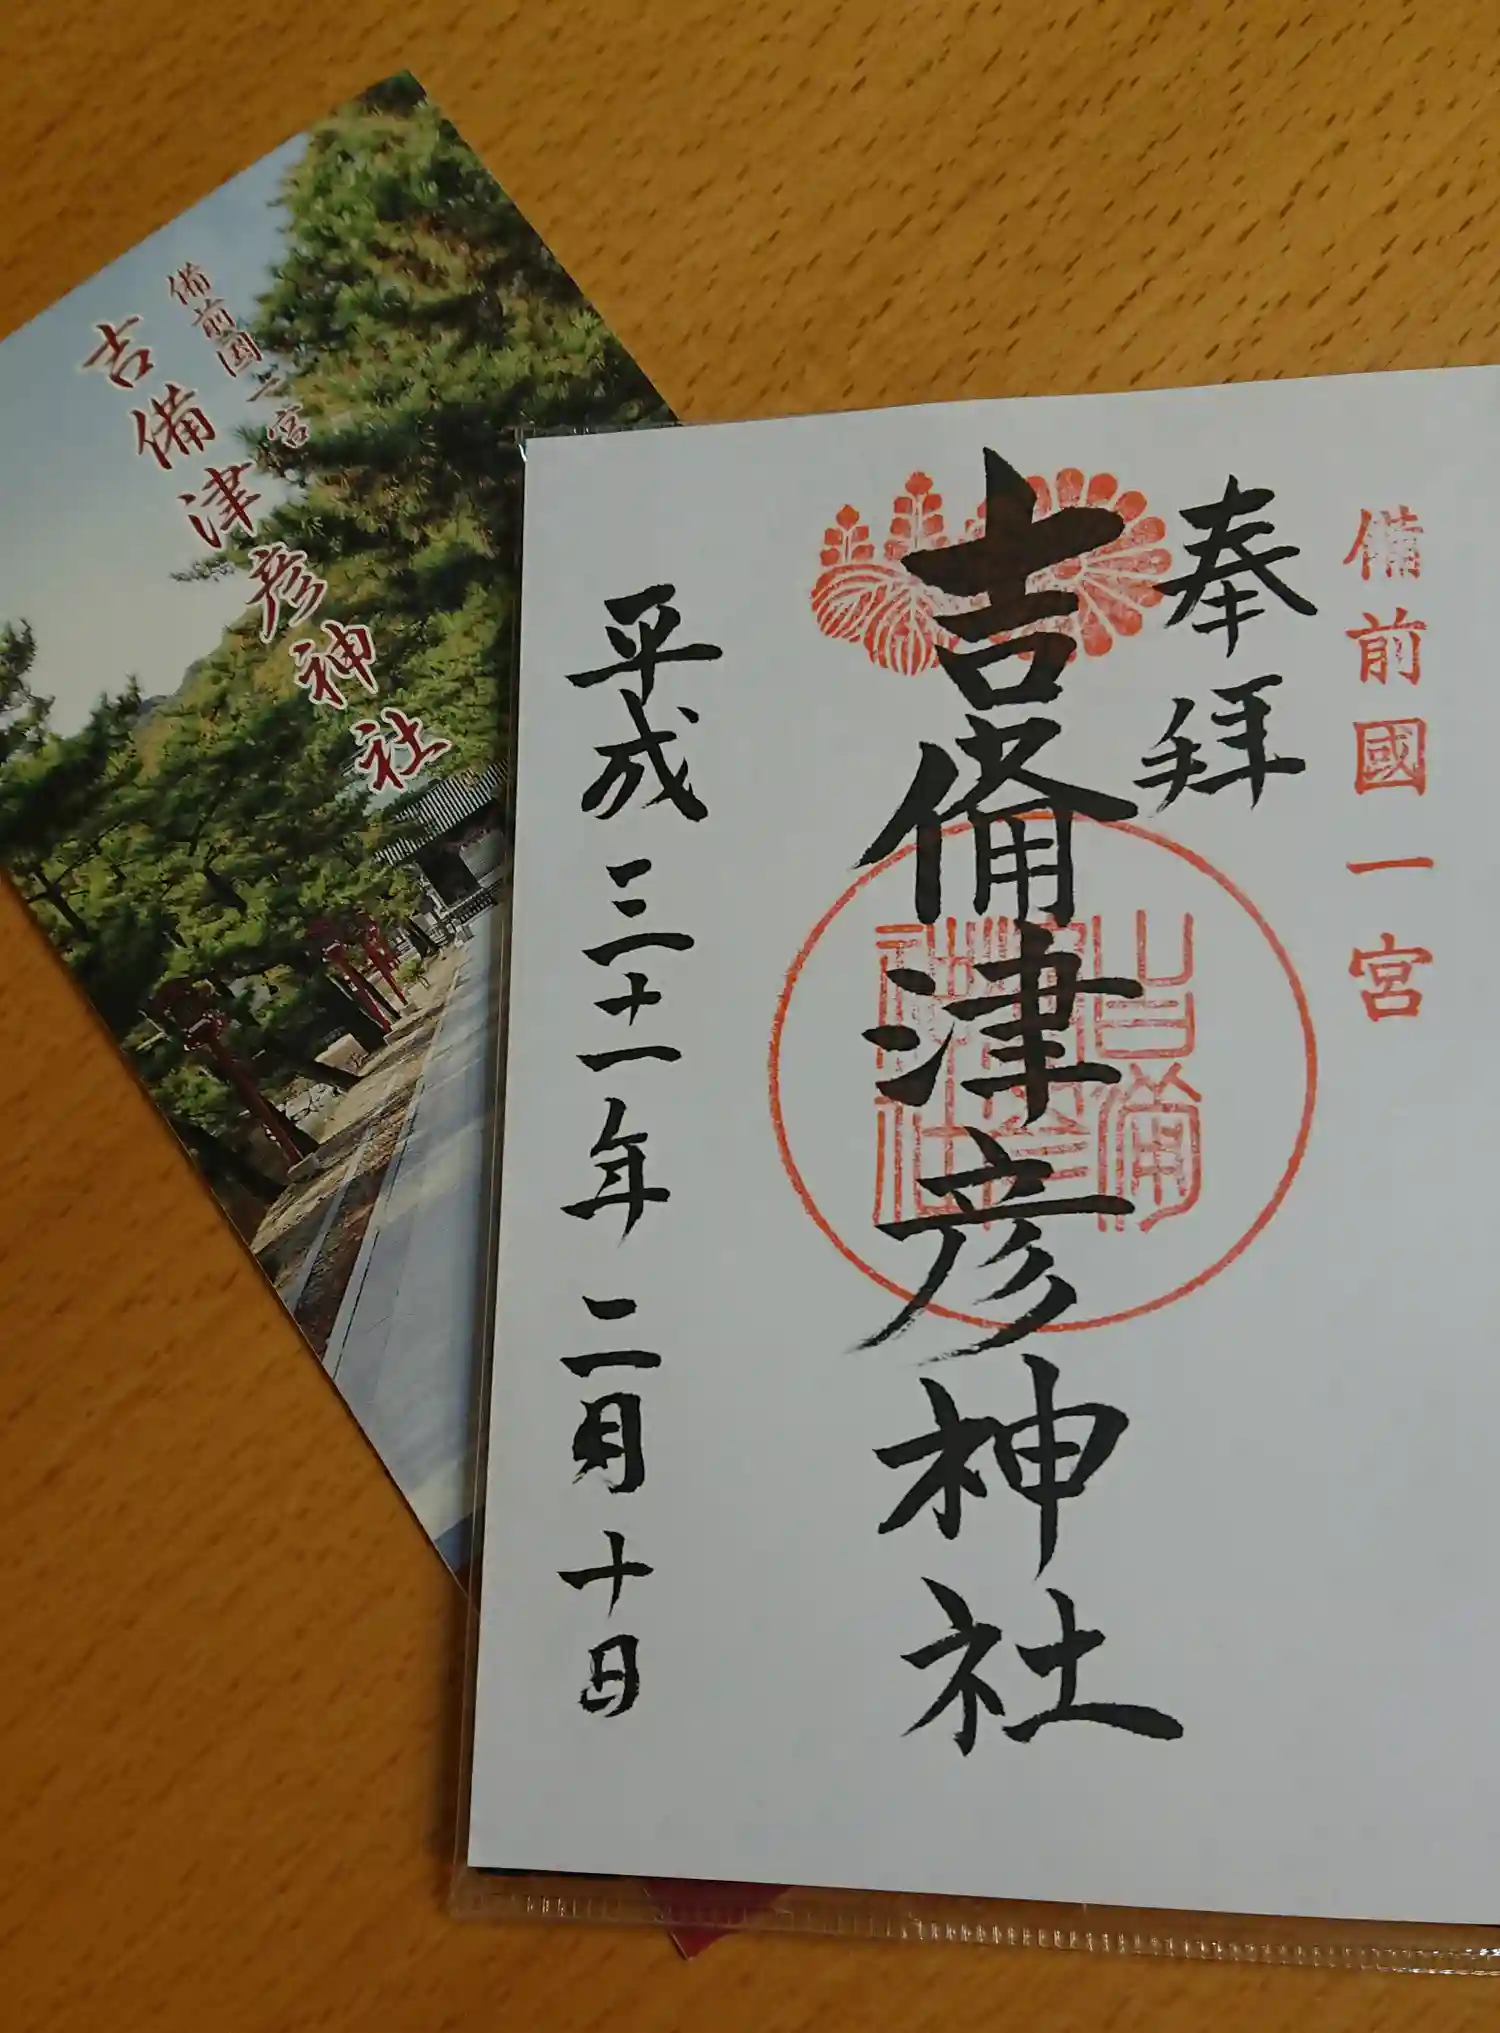 備前国一宮
吉備津彦神社
備前國一宮
奉拝
吉備津彦神社
吉備
津彦
神社
平成三十一年二月十日